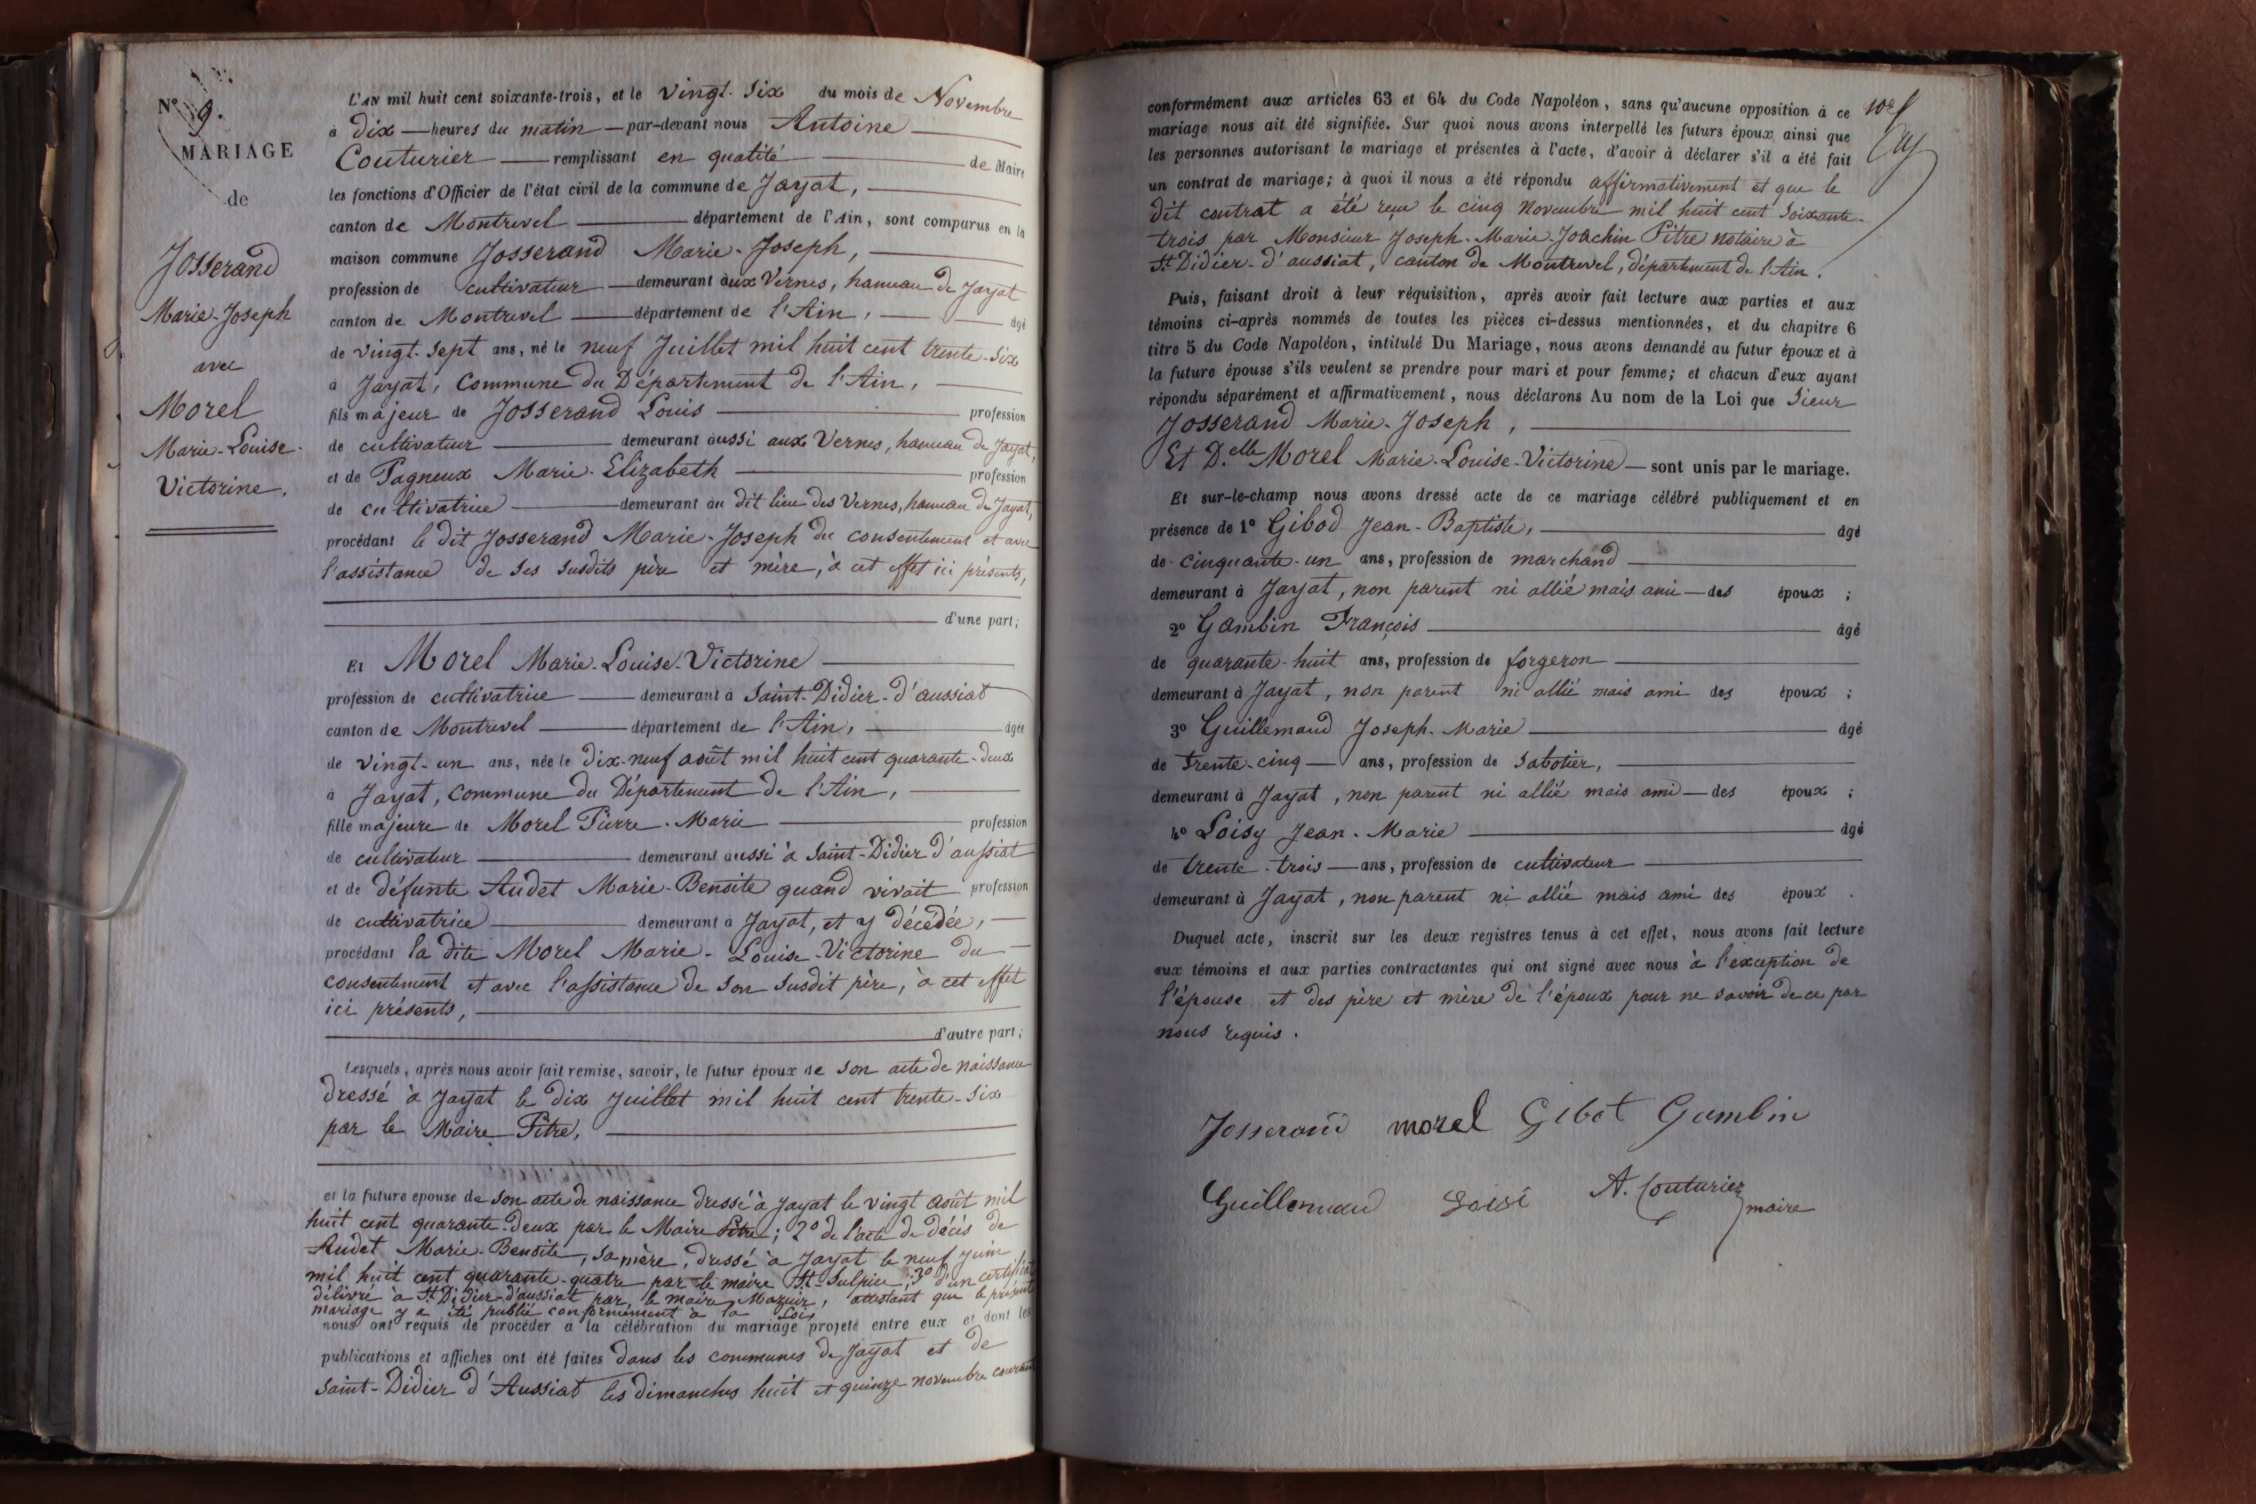 N.º 9.
MARIAGE
de
Josserand
Marie-Joseph
avec
Morel
Marie-Louise-
Victorine.
L'AN mil huit cent soixante-trois, et le vingt-six du mois de Novembre
à dix heures du matin par-devant nous Antoine
Couturier remplissant en qualité de Maire
les fonctions d'Officier de l'état civil de la commune de Jayat,
canton de Montrevel département de l'Ain, sont comparus en la
maison commune Josserand Marie-Joseph,
profession de cultivateur demeurant aux Vernes, hameau de Jayat
canton de Montrevel département de l'Ain, âgé
de vingt-sept ans, né le neuf Juillet mil huit cent trente-six
à Jayat, Commune du Département de l'Ain,
fils majeur de Josserand Louis profession
de cultivateur demeurant aussi aux Vernes, hameau de Jayat,
et de Pagneux Marie-Elizabeth profession
de cultivatrice demeurant au dit lieu des Vernes, hameau de Jayat,
procédant le dit Josserand Marie-Joseph du consentement et avec
l'assistance de ses susdits père et mère, à cet effet ici présents,
d'une part;
Et Morel Marie-Louise-Victorine
profession de cultivatrice demeurant à Saint-Didier-d'aussiat
canton de Montrevel département de l'Ain, âgée
de vingt-un ans, née le dix-neuf août mil huit cent quarante-deux
à Jayat, commune du Département de l'Ain,
fille majeure de Morel Pierre-Marie profession
de cultivateur demeurant aussi à Saint-Didier d'aussiat
et de défunte Audet Marie-Benoite quand vivait profession
de cultivatrice demeurant à Jayat, et y décédée,
procédant la dite Morel Marie-Louise-Victorine du
consentement et avec l'assistance de son susdit père, à cet effet
ici présents,
d'autre part;
Lesquels, après nous avoir fait remise, savoir, le futur époux de son acte de naissance
dressé à Jayat le dix Juillet mil huit cent trente-six
par le Maire Pitre,
et la future épouse de son acte de naissance dressé à Jayat le vingt août mil
huit cent quarante-deux par le Maire Pitre; 2º de l'acte de décès de
Audet Marie-Benoite, sa mère, dressé à Jayat le neuf Juin
mil huit cent quarante-quatre par le maire St-Sulpice; 3º d'un certificat
délivré à St Didier-d'aussiat par le maire Mazuir, attestant que le présent
mariage y a été publié conformément à la Loi,
nous ont requis de procéder à la célébration du mariage projeté entre eux et dont les
publications et affiches ont été faites dans les communes de Jayat et de
Saint-Didier d'Aussiat les dimanches huit et quinze novembre courant
conformément aux articles 63 et 64 du Code Napoléon, sans qu'aucune opposition à ce
mariage nous ait été signifiée. Sur quoi nous avons interpellé les futurs époux ainsi que
les personnes autorisant le mariage et présentes à l'acte, d'avoir à déclarer s'il a été fait
un contrat de mariage; à quoi il nous a été répondu affirmativement et que le
dit contrat a été reçu le cinq Novembre mil huit cent soixante-
trois par Monsieur Joseph-Marie-Joachin Pitre notaire à
St Didier-d'aussiat, canton de Montrevel, département de l'Ain.
Puis, faisant droit à leur réquisition, après avoir fait lecture aux parties et aux
témoins ci-après nommés de toutes les pièces ci-dessus mentionnées, et du chapitre 6
titre 5 du Code Napoléon, intitulé Du Mariage, nous avons demandé au futur époux et à
la future épouse s'ils veulent se prendre pour mari et pour femme; et chacun d'eux ayant
répondu séparément et affirmativement, nous déclarons Au nom de la Loi que Sieur
Josserand Marie-Joseph,
Et D.elle Morel Marie-Louise-Victorine sont unis par le mariage.
Et sur-le-champ nous avons dressé acte de ce mariage célébré publiquement et en
présence de 1º Gibod Jean-Baptiste, âgé
de cinquante-un ans, profession de marchand
demeurant à Jayat, non parent ni allié mais ami des époux ;
2º Gambin François âgé
de quarante-huit ans, profession de forgeron
demeurant à Jayat, non parent ni allié mais ami des époux ;
3º Guillemaud Joseph-Marie âgé
de trente-cinq ans, profession de Sabotier,
demeurant à Jayat, non parent ni allié mais ami des époux ;
4º Loisy Jean-Marie âgé
de trente-trois ans, profession de cultivateur
demeurant à Jayat, non parent ni allié mais ami des époux .
Duquel acte, inscrit sur les deux registres tenus à cet effet, nous avons fait lecture
aux témoins et aux parties contractantes qui ont signé avec nous à l'exception de
l'épouse et des père et mère de l'époux pour ne savoir de ce par
nous requis.
Josserand morel Gibot Gambin
Guillemaud Loisi A. Couturier
maire